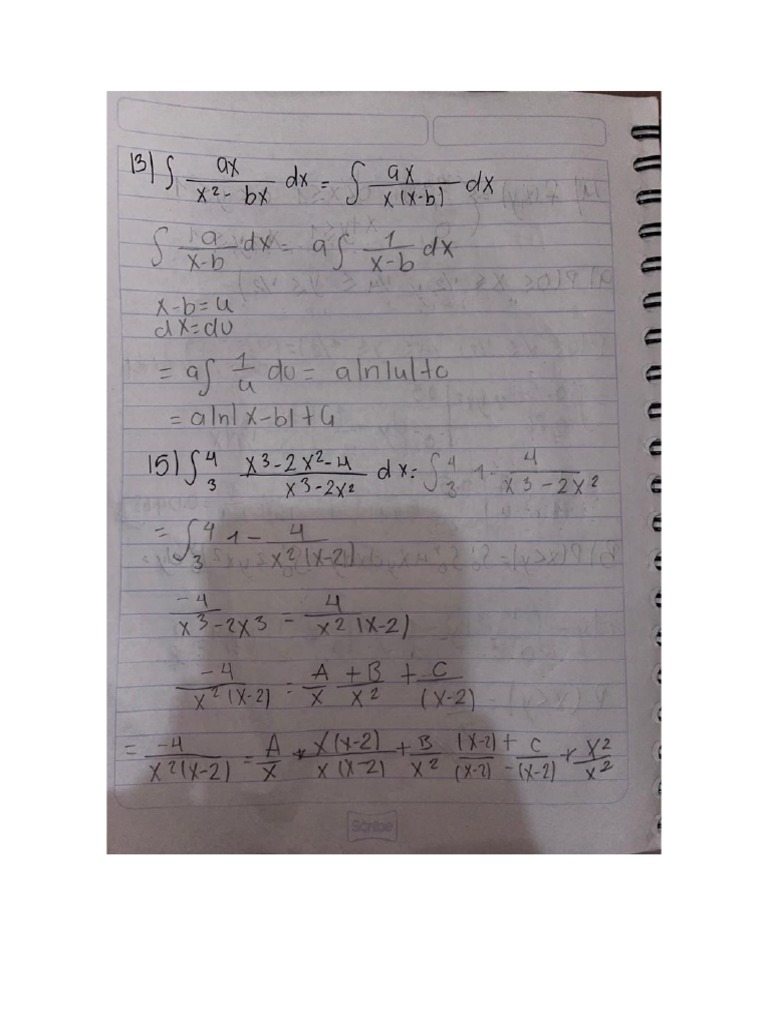 13) ∫ ax / x² - bx dx = ∫ ax / x(x-b) dx
∫ a / x-b dx = a ∫ 1 / x-b dx
x-b = u
dx = du
= a ∫ 1 / u du = a ln |u| + c
= a ln |x-b| + C
15) ∫₃⁴ x³ - 2x² - 4 / x³ - 2x² dx = ∫₃⁴ 1 - 4 / x³ - 2x²
= ∫₃⁴ 1 - 4 / x² (x-2)
-4 / x³ - 2x³ = 4 / x² (x-2)
-4 / x² (x-2) = A / x + B / x² + C / (x-2)
= -4 / x² (x-2) = A / x * x(x-2) / x(x-2) + B / x² (x-2) / (x-2) + C / -(x-2) * x² / x²
Scribe